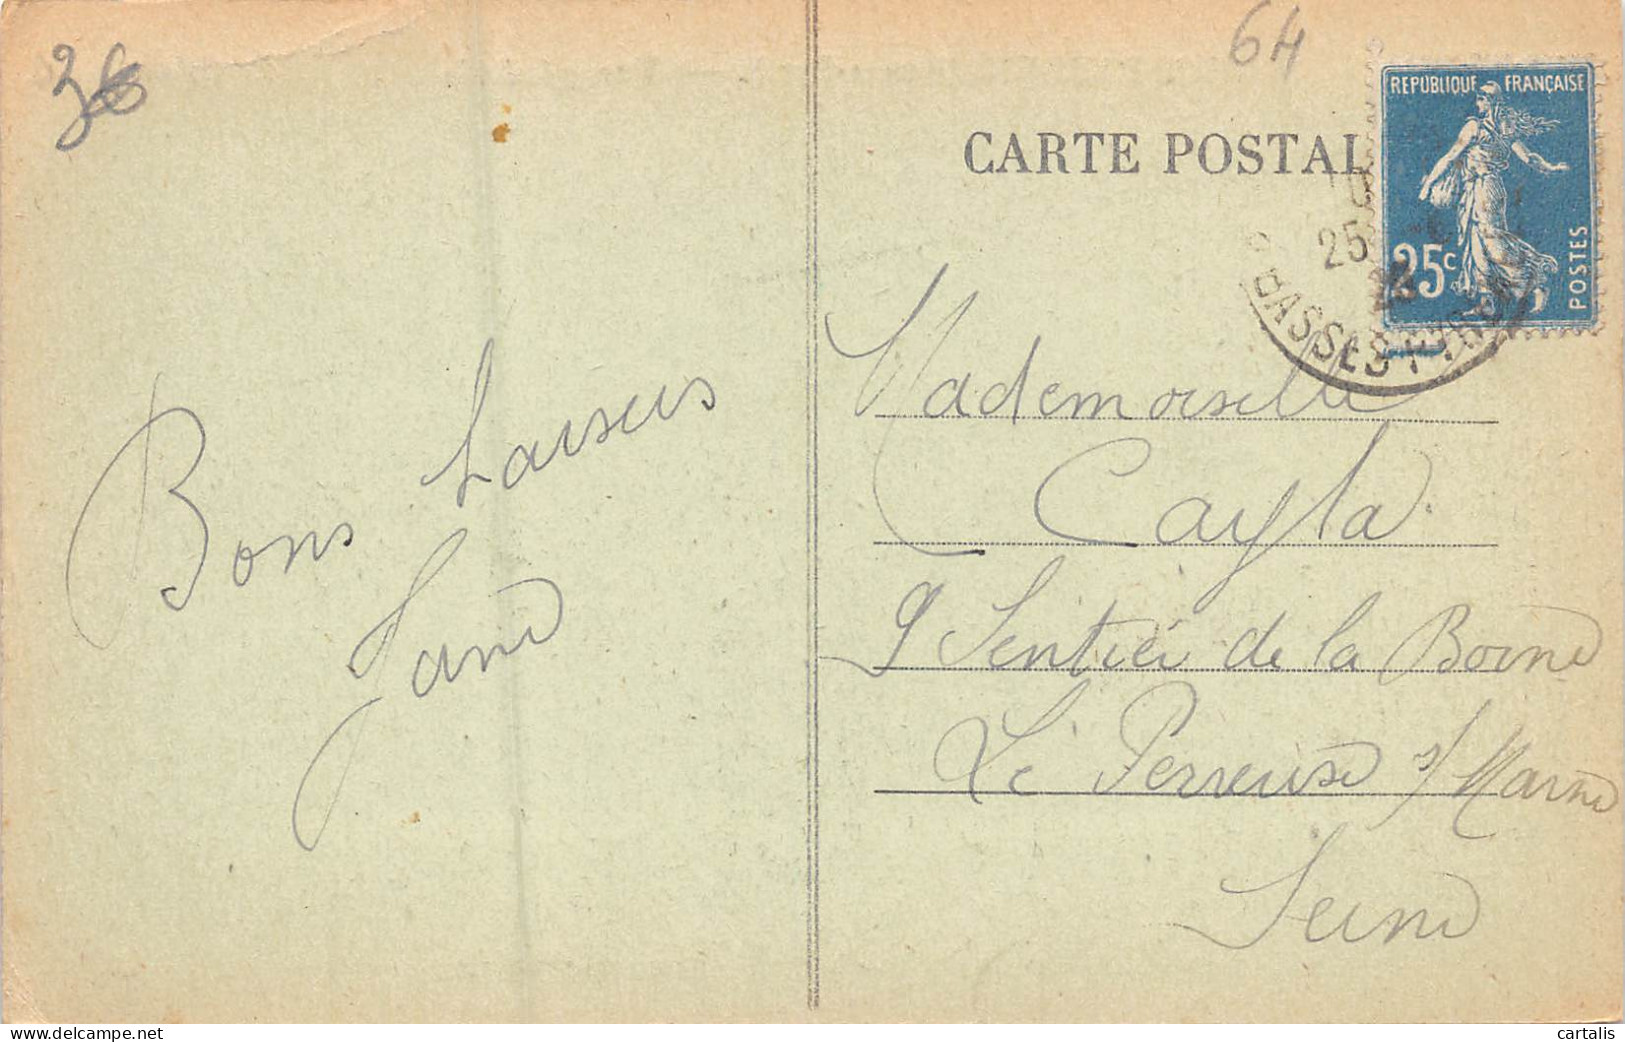 36
64
REPUBLIQUE FRANÇAISE
25c
POSTES
CARTE POSTAL
25
BASSES PYRÉNÉES
Mademoiselle
Cayla
9 Sentier de la Borne
Le Perreuse s/ Marne
Seine
Bons baisers
Jane
www.delcampe.net
cartalis